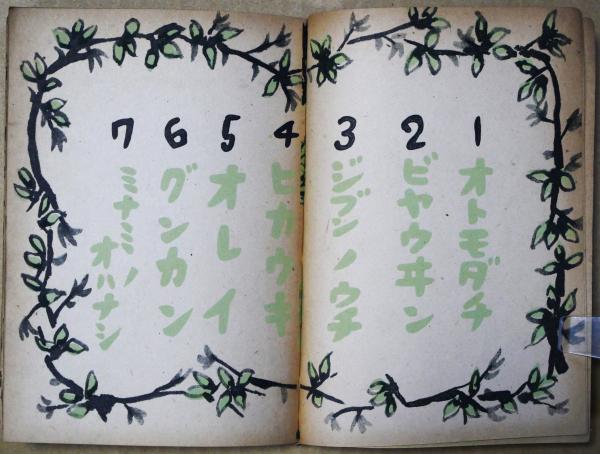 1 オトモダチ
2 ビヤウヰン
3 ジブンノウチ
4 ヒカウキ
5 オレイ
6 グンカン
7 ミナミノ
オハナシ